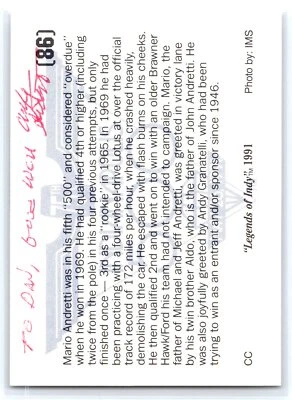 TO DAN, 
(86)
Mario Andretti was in his fifth "500" and considered "overdue"
when he won in 1969. He had qualified 4th or higher (including
twice from the pole) in his four previous attempts, but only
finished once — 3rd as a "rookie" in 1965. In 1969 he had
been practicing with a four-wheel-drive Lotus at over the official
track record of 172 miles per hour, when he crashed heavily,
demolishing the car. He escaped with flash burns on his cheeks.
He then qualified 2nd and went on to win with an older Brawner
Hawk/Ford his team had not intended to campaign. Mario, the
father of Michael and Jeff Andretti, was greeted in victory lane
by his twin brother Aldo, who is the father of John Andretti. He
was also joyfully greeted by Andy Granatelli, who had been
trying to win as an entrant and/or sponsor since 1946.
Photo by: IMS
"Legends of Indy"™ 1991
CC